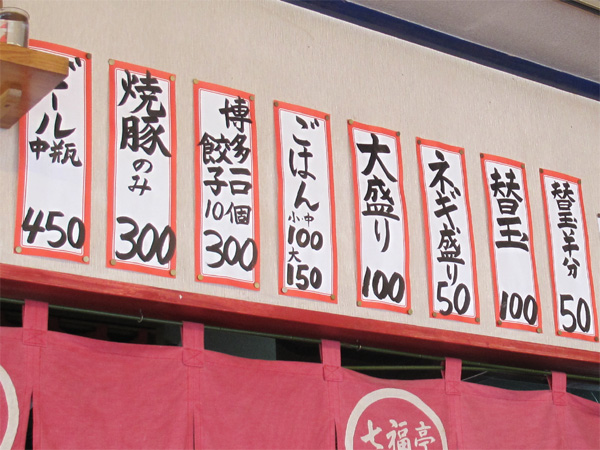 ビール
中瓶
450
焼豚のみ
300
博多一口
餃子
10個
300
ごはん
小中
100
大
150
大盛り
100
ネギ盛り
50
替玉
100
替玉半分
50
七福亭